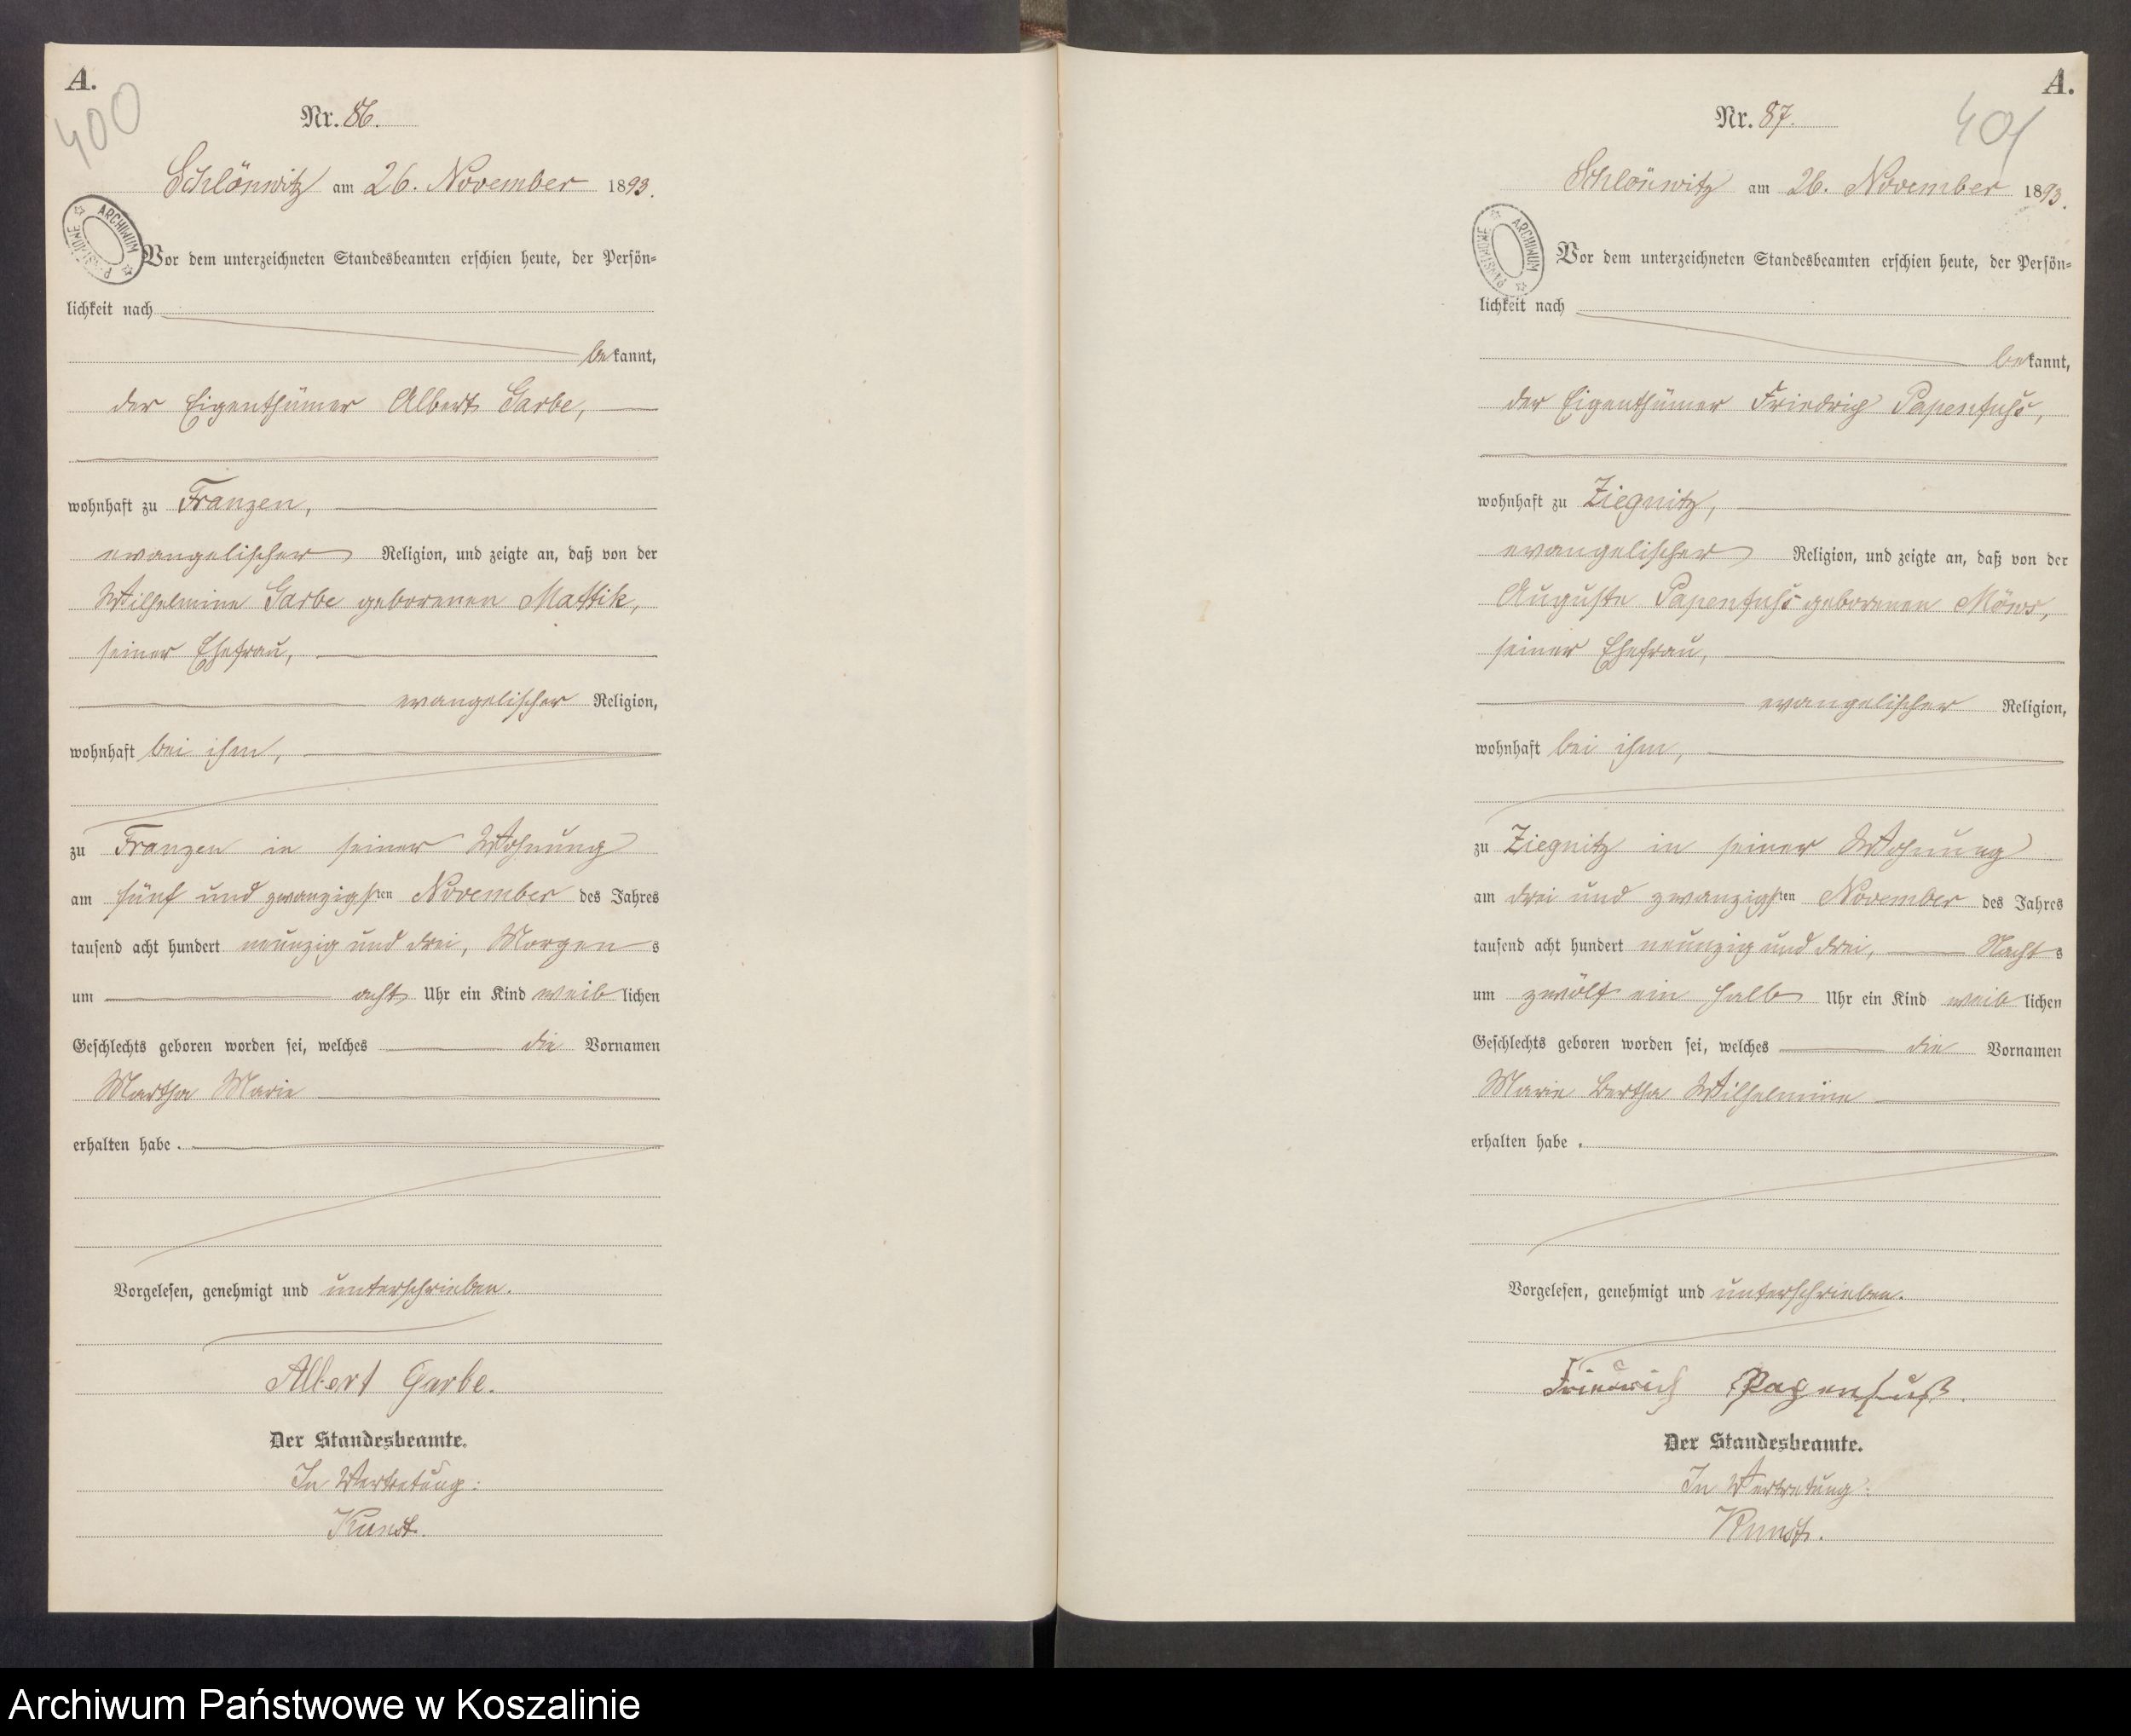 A.
400
Nr. 86.
Schlönwitz am 26. November 1893.
ARCHIWUM PAŃSTWOWE
Vor dem unterzeichneten Standesbeamten erschien heute, der Persön-
lichkeit nach
bekannt,
der Eigenthümer Albert Garbe,
wohnhaft zu Franzen,
evangelischer Religion, und zeigte an, daß von der
Wilhelmine Garbe geborenen Mattik,
seiner Ehefrau,
evangelischer Religion,
wohnhaft bei ihm,
zu Franzen in seiner Wohnung
am fünf und zwanzigsten November des Jahres
tausend acht hundert neunzig und drei, Morgens
um acht Uhr ein Kind weiblichen
Geschlechts geboren worden sei, welches die Vornamen
Martha Marie
erhalten habe.
Vorgelesen, genehmigt und unterschrieben.
Albert Garbe.
Der Standesbeamte.
In Vertretung:
Kunst.
A.
401
Nr. 87.
Schlönwitz am 26. November 1893.
ARCHIWUM PAŃSTWOWE
Vor dem unterzeichneten Standesbeamten erschien heute, der Persön-
lichkeit nach
bekannt,
der Eigenthümer Friedrich Papenfuß,
wohnhaft zu Ziegnitz,
evangelischer Religion, und zeigte an, daß von der
Auguste Papenfuß geborenen Möws,
seiner Ehefrau,
evangelischer Religion,
wohnhaft bei ihm,
zu Ziegnitz in seiner Wohnung
am drei und zwanzigsten November des Jahres
tausend acht hundert neunzig und drei, Nachts
um zwölf ein halb Uhr ein Kind weiblichen
Geschlechts geboren worden sei, welches die Vornamen
Marie Bertha Wilhelmine
erhalten habe.
Vorgelesen, genehmigt und unterschrieben.
Friedrich Papenfuß.
Der Standesbeamte.
In Vertretung:
Kunst.
Archiwum Państwowe w Koszalinie